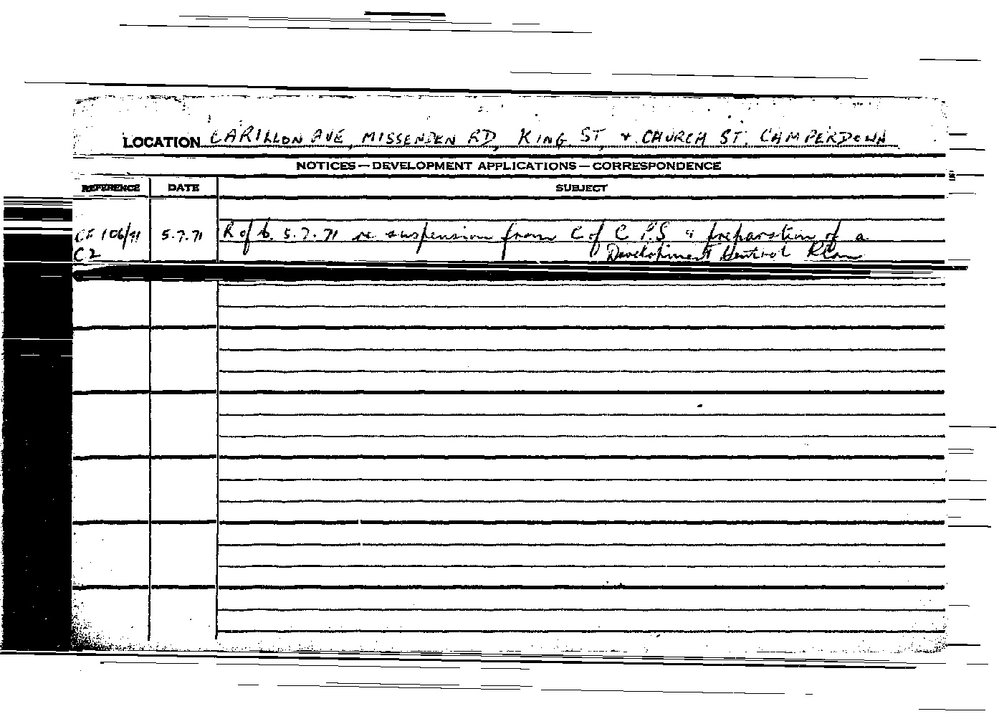 LOCATION CARILLON AVE, MISSENDEN RD, KING ST, & CHURCH ST. CAMPERDOWN
NOTICES—DEVELOPMENT APPLICATIONS—CORRESPONDENCE
REFERENCE DATE SUBJECT
CF 106/71 5.7.71 R of C. 5.7.71 re suspension from C of C P.S & preparation of a
C2 Development Control Plan